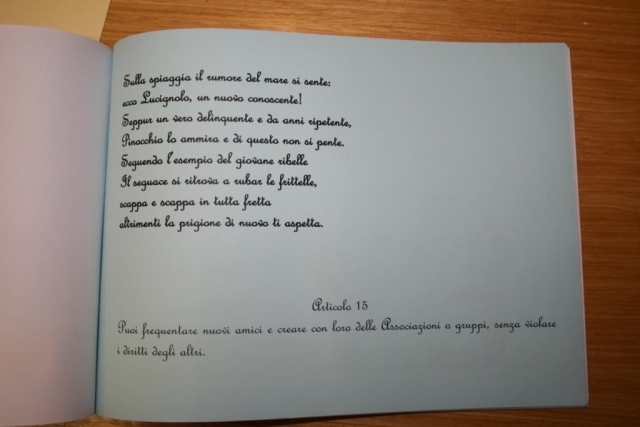 Sulla spiaggia il rumore del mare si sente:
ecco Lucignolo, un nuovo conoscente!
Seppur un vero delinquente e da anni ripetente,
Pinocchio lo ammira e di questo non si pente.
Seguendo l'esempio del giovane ribelle
Il seguace si ritrova a rubar le frittelle,
scappa e scappa in tutta fretta
altrimenti la prigione di nuovo ti aspetta.
Articolo 15
Puoi frequentare nuovi amici e creare con loro delle Associazioni o gruppi, senza violare
i diritti degli altri.